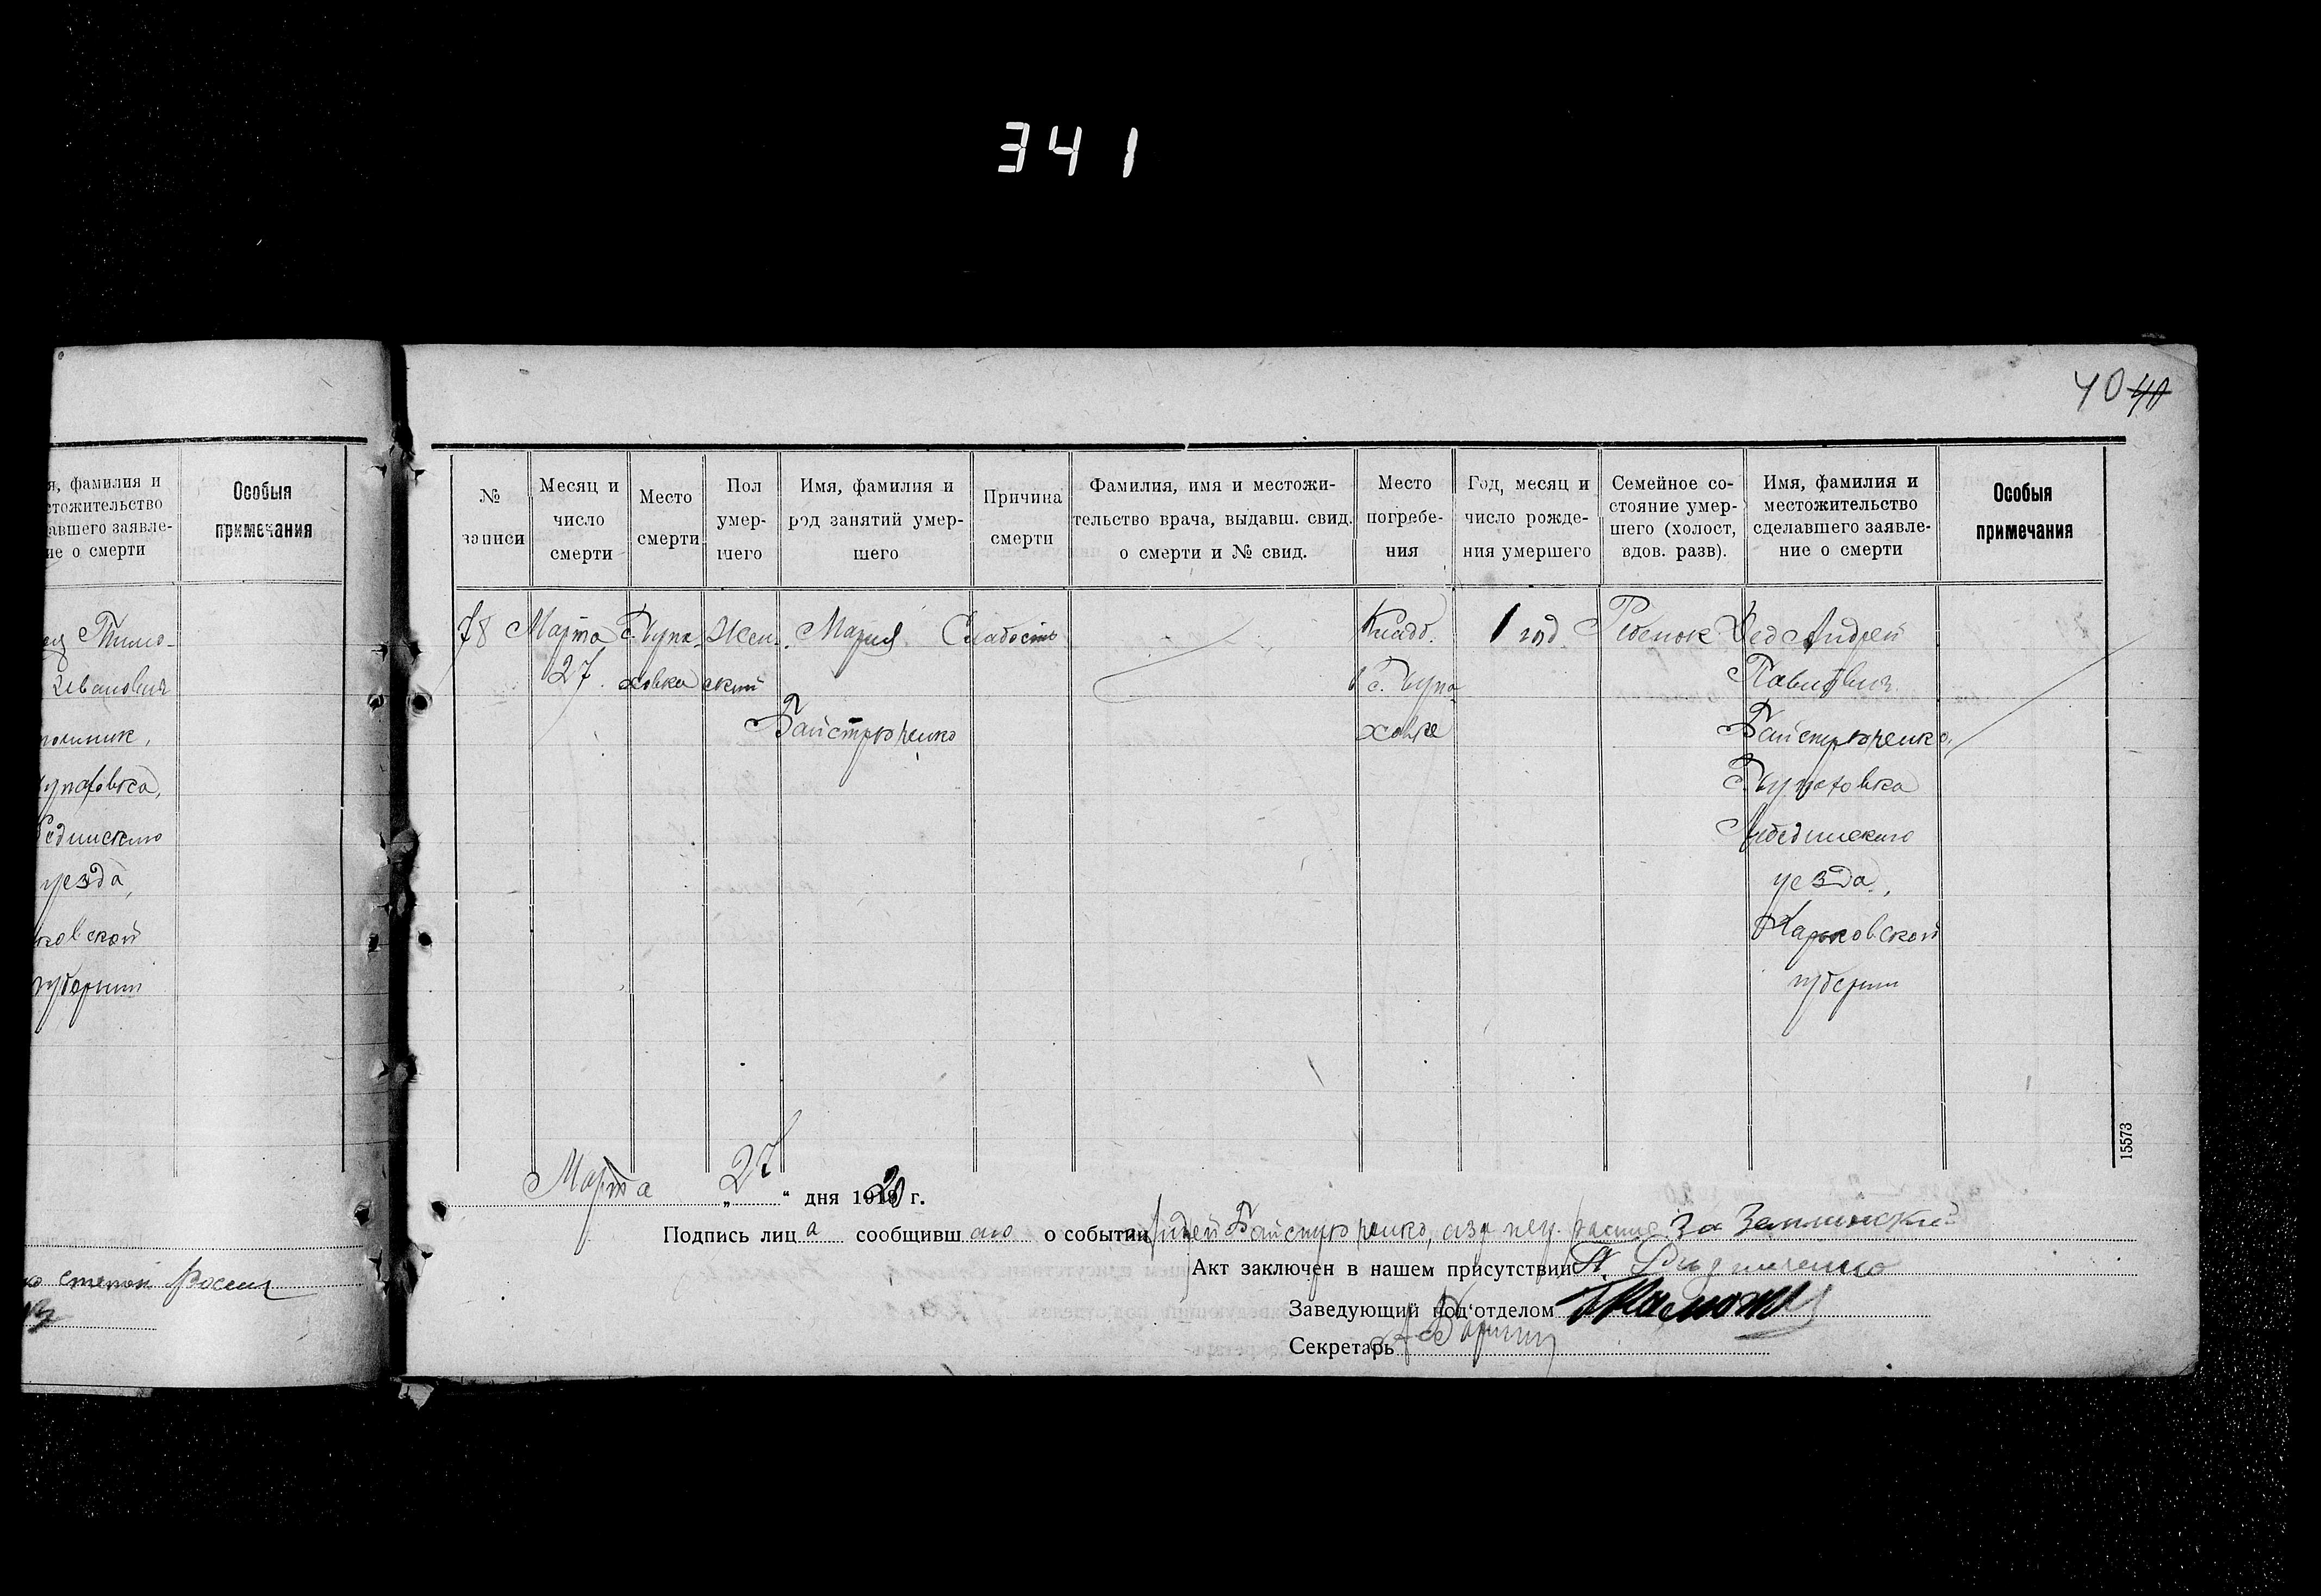 341
40 40
я, фамилия и
стожительство
авшего заявле-
ие о смерти
Особыя
примечания
Тимо-
Иванович
уезда,
ковской
губернии
степан
№
записи
Месяц и
число
смерти
Место
смерти
Пол
умер-
шего
Имя, фамилия и
род занятий умер-
шего
Причина
смерти
Фамилия, имя и местожи-
тельство врача, выдавш. свид.
о смерти и № свид.
Место
погребе-
ния
Год, месяц и
число рожде-
ния умершего
Семейное со-
стояние умер-
шего (холост,
вдов. разв).
Имя, фамилия и
местожительство
сделавшего заявле-
ние о смерти
Особыя
примечания
78
Марта
27
Жен-
ский
Мария
Байстрюченко
Слабость
Кладб.
1 год
Ребенок
Дед Андрей
Павлович
Байстрюченко,
Лебединского
уезда,
Харьковской
губернии
15573
Марта „ 27 “ дня 1920 г.
Подпись лица сообщившаго о событии Андрей Байстрюченко, за
Акт заключен в нашем присутствии
Заведующий под‘отделом
Секретарь